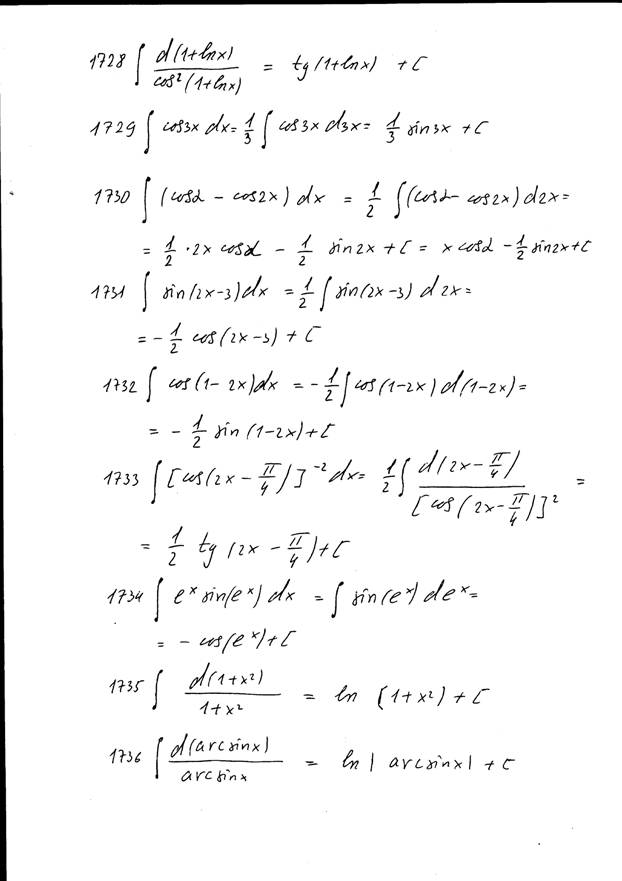 1728 ∫ d(1+lnx)/cos²(1+lnx) = tg(1+lnx) + C
1729 ∫ cos3x dx = 1/3 ∫ cos3x d3x = 1/3 sin3x + C
1730 ∫ (cosα - cos2x) dx = 1/2 ∫(cosα - cos2x) d2x =
= 1/2 · 2x cosα - 1/2 sin2x + C = x cosα - 1/2 sin2x + C
1731 ∫ sin(2x-3)dx = 1/2 ∫ sin(2x-3) d2x =
= - 1/2 cos(2x-3) + C
1732 ∫ cos(1-2x)dx = - 1/2 ∫ cos(1-2x) d(1-2x) =
= - 1/2 sin(1-2x) + C
1733 ∫ [cos(2x - π/4)]⁻² dx = 1/2 ∫ d(2x - π/4)/[cos(2x - π/4)]² =
= 1/2 tg(2x - π/4) + C
1734 ∫ eˣ sin(eˣ) dx = ∫ sin(eˣ) deˣ =
= - cos(eˣ) + C
1735 ∫ d(1+x²)/1+x² = ln (1+x²) + C
1736 ∫ d(arcsinx)/arcsinx = ln| arcsinx| + C